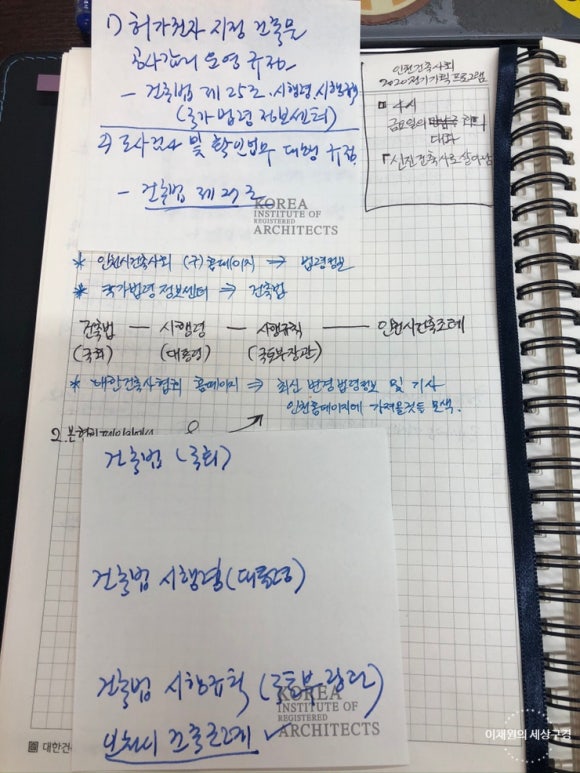 1) 허가권자 지정 건축물
공사감리 운영 규정
- 건축법 제25조. 시행령. 시행규칙
(국가법령정보센터)
2) 조사검사 및 확인업무 대행 규정
- 건축법 제27조
KOREA
INSTITUTE OF
REGISTERED
ARCHITECTS
인천건축사회
2020 정기기획프로그램
4시
금요일의
대화
「신진건축사로 살아남
* 인천시건축사회 (구)홈페이지 ⇒ 법령정보
* 국가법령정보센터 ⇒ 건축법
건축법 — 시행령 — 시행규칙 — 인천시건축조례
(국회) (대통령) (국토부장관)
* 대한건축사협회 홈페이지 ⇒ 최신 변경법령정보 및 기사
인천홈페이지에 가져올것들 모색.
2.
건축법 (국회)
건축법 시행령 (대통령)
건축법 시행규칙 (국토부장관)
인천시 건축조례 ✓
KOREA
INSTITUTE OF
REGISTERED
ARCHITECTS
대한건
이제원의 세상구경